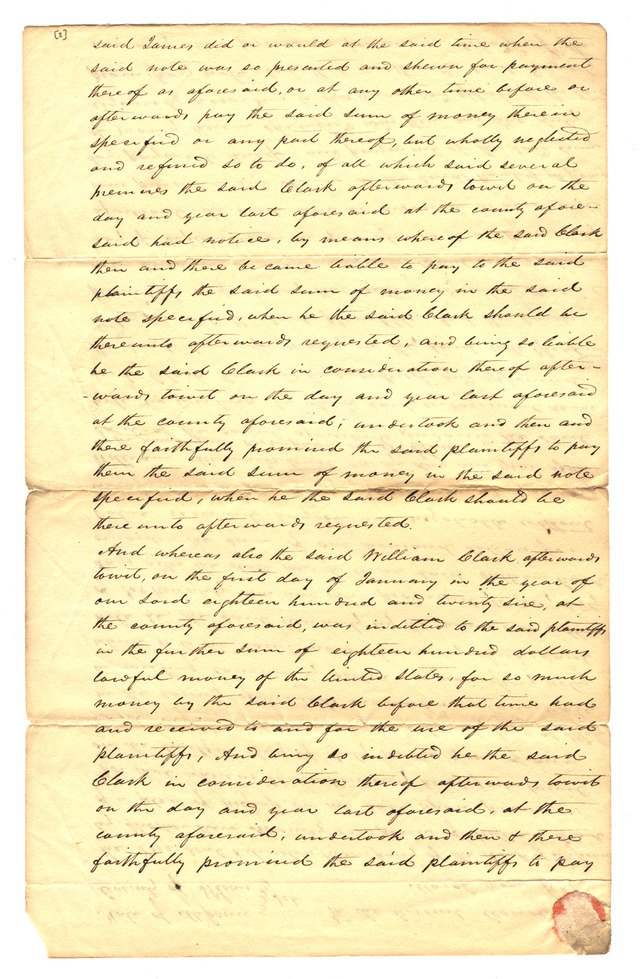 [2]
said James did or would at the said time when the
said note was so presented and shewn for payment
thereof as aforesaid, or at any other time before or
afterwards pay the said sum of money therein
specified or any part thereof, but wholly neglected
and refused so to do, of all which said several
premises the said Clark afterwards towit on the
day and year last aforesaid at the county afore-
said had notice, by means whereof the said Clark
then and there became liable to pay to the said
plaintiffs the said sum of money in the said
note specified, when he the said Clark should be
thereunto afterwards requested, and being so liable
he the said Clark in consideration thereof after-
-wards towit on the day and year last aforesaid
at the county aforesaid, undertook and then and
there faithfully promised the said plaintiffs to pay
them the said sum of money in the said note
specified, when he the said Clark should be
thereunto afterwards requested.
And whereas also the said William Clark afterwards
towit, on the first day of January in the year of
our Lord eighteen hundred and twenty six, at
the county aforesaid, was indebted to the said plaintiffs
in the further sum of eighteen hundred dollars
lawful money of the United States, for so much
money by the said Clark before that time had
and received to and for the use of the said
plaintiffs, And being so indebted he the said
Clark in consideration thereof afterwards towit
on the day and year last aforesaid, at the
county aforesaid, undertook and then & there
faithfully promised the said plaintiffs to pay